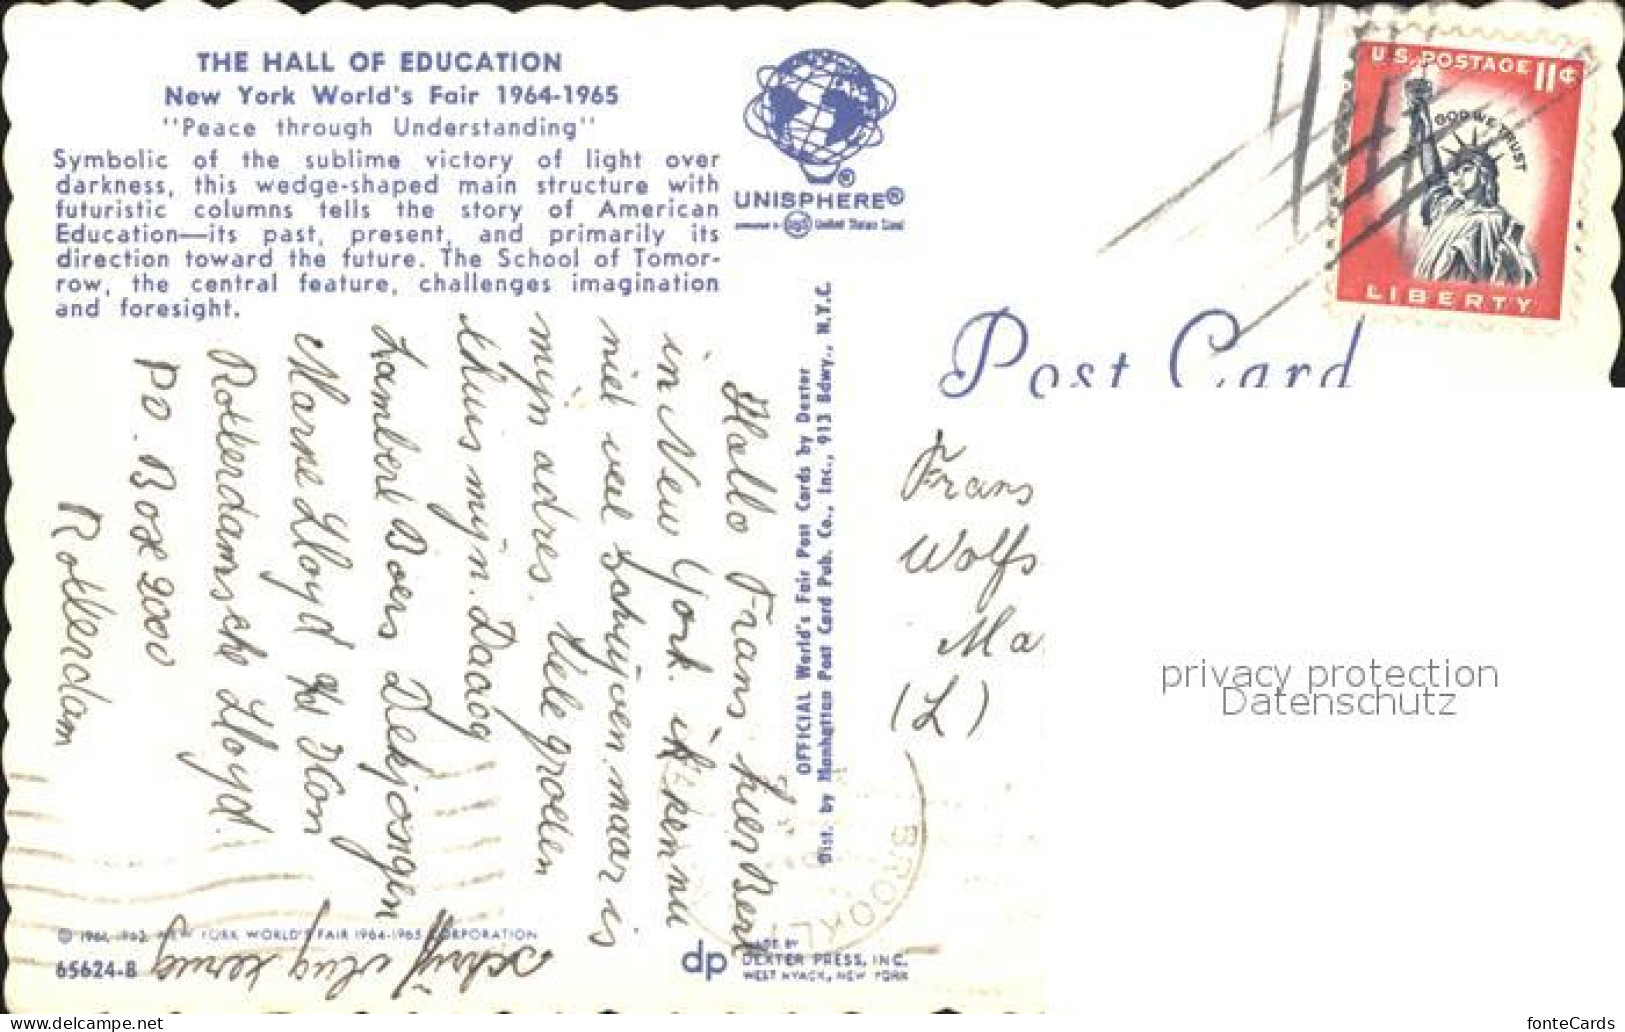 THE HALL OF EDUCATION
New York World's Fair 1964-1965
"Peace through Understanding"
Symbolic of the sublime victory of light over
darkness, this wedge-shaped main structure with
futuristic columns tells the story of American
Education—its past, present, and primarily its
direction toward the future. The School of Tomor-
row, the central feature, challenges imagination
and foresight.
UNISPHERE®
United States Steel
U.S. POSTAGE 11¢
IN GOD WE TRUST
LIBERTY
Post Card
Hallo Frans hier Bert
in New York. ik ken nu
niet veel schrijven maar is
mijn adres. Vele groeten
thuis mijn. Daaag
Lambert Boers Dekjongen
Marne Lloyd
Rotterdamsche Lloyd.
PO. Box 2000
Rotterdam
schrijf vlug terug
OFFICIAL World's Fair Post Cards by Dexter
Dist. by Manhattan Post Card Pub. Co., Inc., 913 Bdwy., N.Y.C.
Frans
Wolfs
Ma
(L)
privacy protection
Datenschutz
BROOKLY
© 1961, 1962, NEW YORK WORLD'S FAIR 1964-1965 CORPORATION
65624-B
dp
DEXTER PRESS, INC.
WEST NYACK, NEW YORK
https://www.delcampe.net
fonteCards